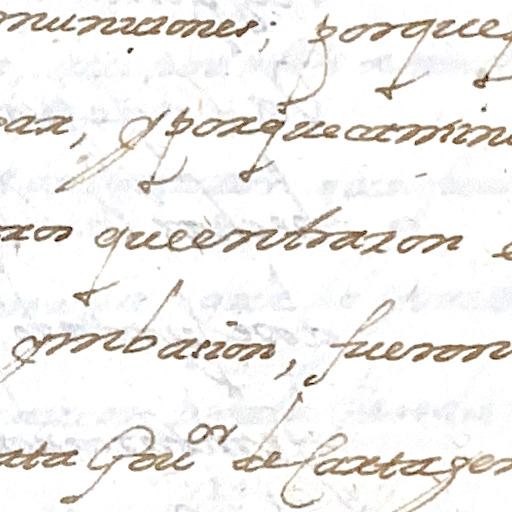 municiones, porque
par, y porque camin
xos que entraron e
ymbasion, fueron
ata Gou.or de Cartagen